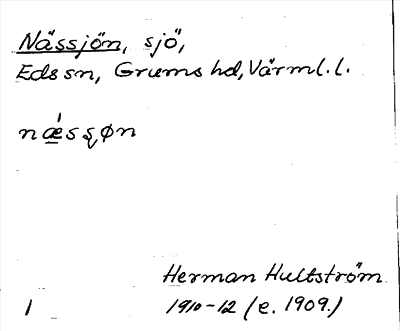 Nässjön, sjö,
Eds sn, Grums hd, Värml. l.
nǽ̲sʂøn
Herman Hultström
1910-12 (e. 1909.)
1